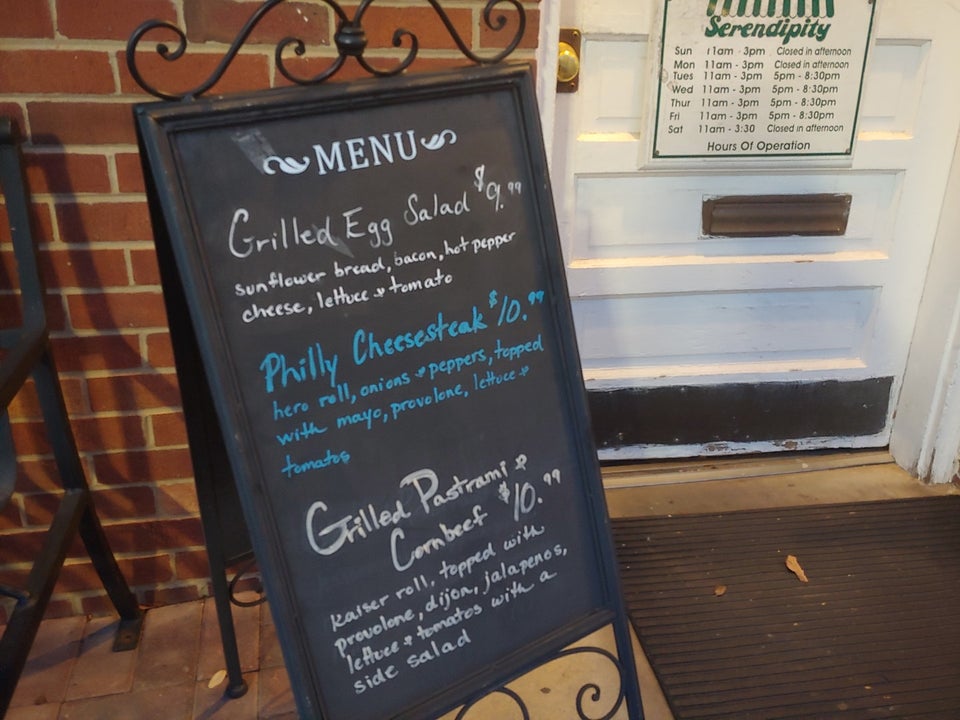 MENU
Grilled Egg Salad $9.99
sunflower bread, bacon, hot pepper
cheese, lettuce & tomato
Philly Cheesesteak $10.99
hero roll, onions & peppers, topped
with mayo, provolone, lettuce &
tomatos
Grilled Pastrami &
Cornbeef $10.99
Kaiser roll, topped with
provolone, dijon, jalapenos,
lettuce & tomatos with a
side salad
Serendipity
Sun 11am - 3pm Closed in afternoon
Mon 11am - 3pm Closed in afternoon
Tues 11am - 3pm 5pm - 8:30pm
Wed 11am - 3pm 5pm - 8:30pm
Thur 11am - 3pm 5pm - 8:30pm
Fri 11am - 3pm 5pm - 8:30pm
Sat 11am - 3:30 Closed in afternoon
Hours Of Operation